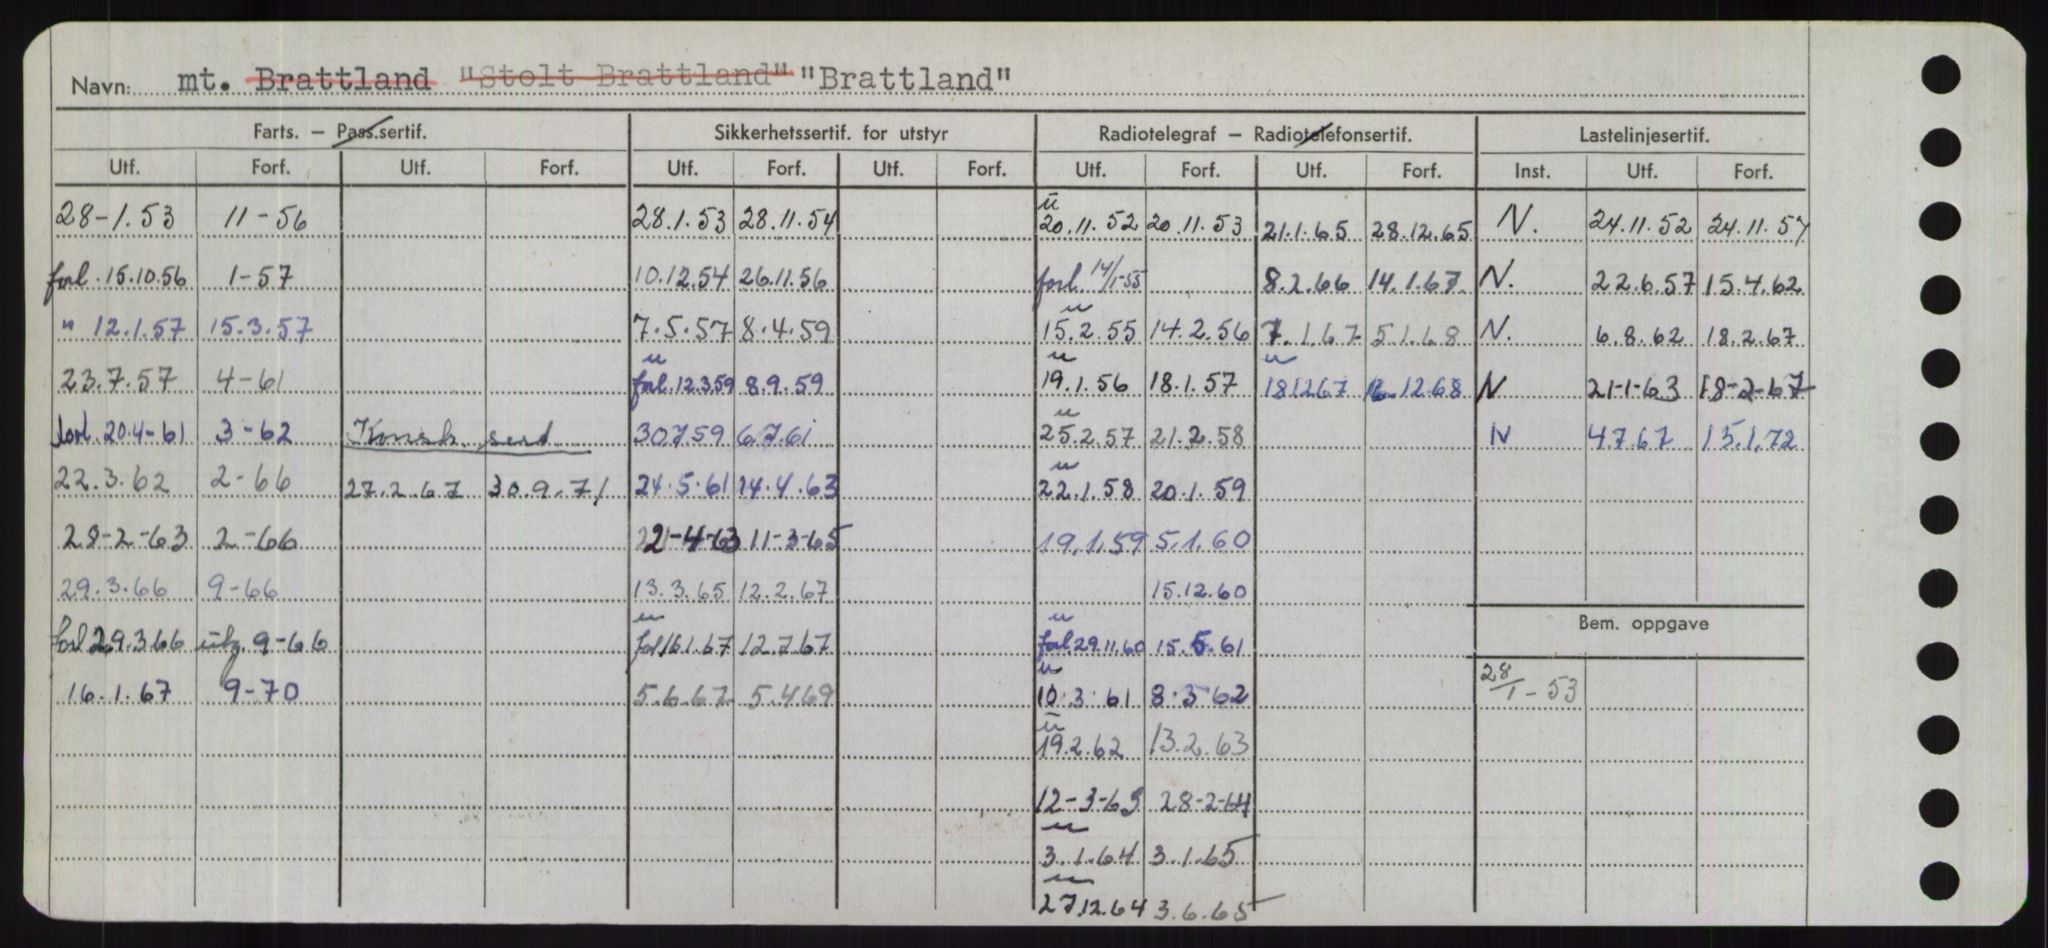 Navn: mt. Brattland "Stolt Brattland" "Brattland"
Farts. – Pass.sertif. Sikkerhetssertif. for utstyr Radiotelegraf – Radiotelefonsertif. Lastelinjesertif.
Utf. Forf. Utf. Forf. Utf. Forf. Utf. Forf. Utf. Forf. Utf. Forf. Inst. Utf. Forf.
28-1.53 11-56 28.1.53 28.11.54 u 20.11.52 20.11.53 21.1.65 28.12.65 N. 24.11.52 24.11.57
forl. 15.10.56 1-57 10.12.54 26.11.56 forl. 14/1-55 8.2.66 14.1.67 N. 22.6.57 15.4.62
" 12.1.57 15.3.57 7.5.57 8.4.59 u 15.2.55 14.2.56 7.1.67 5.1.68 N. 6.8.62 18.2.67
23.7.57 4-61 u forl. 12.3.59 8.9.59 u 19.1.56 18.1.57 u 18.12.67 16.12.68 N 21-1-63 18-2-67
forl. 20.4-61 3-62 Konsk. serd 30.7.59 6.7.61 u 25.2.57 21.2.58 N 4.7.67 15.1.72
22.3.62 2-66 27.2.67 30.9.71 24.5.61 14.4.63 u 22.1.58 20.1.59
28-2-63 2-66 22-4-63 11-3-65 19.1.59 5.1.60
29.3.66 9-66 13.3.65 12.2.67 15.12.60
forl 29.3.66 utg. 9-66 u forl 16.1.67 12.7.67 u forl 29.11.60 15.5.61 Bem. oppgave
16.1.67 9-70 5.6.67 5.4.69 u 10.3.61 8.3.62 28/1-53
u 19.2.62 13.2.63
12-3-63 28-2-64
u 3.1.64 3.1.65
u 27.12.64 3.6.65